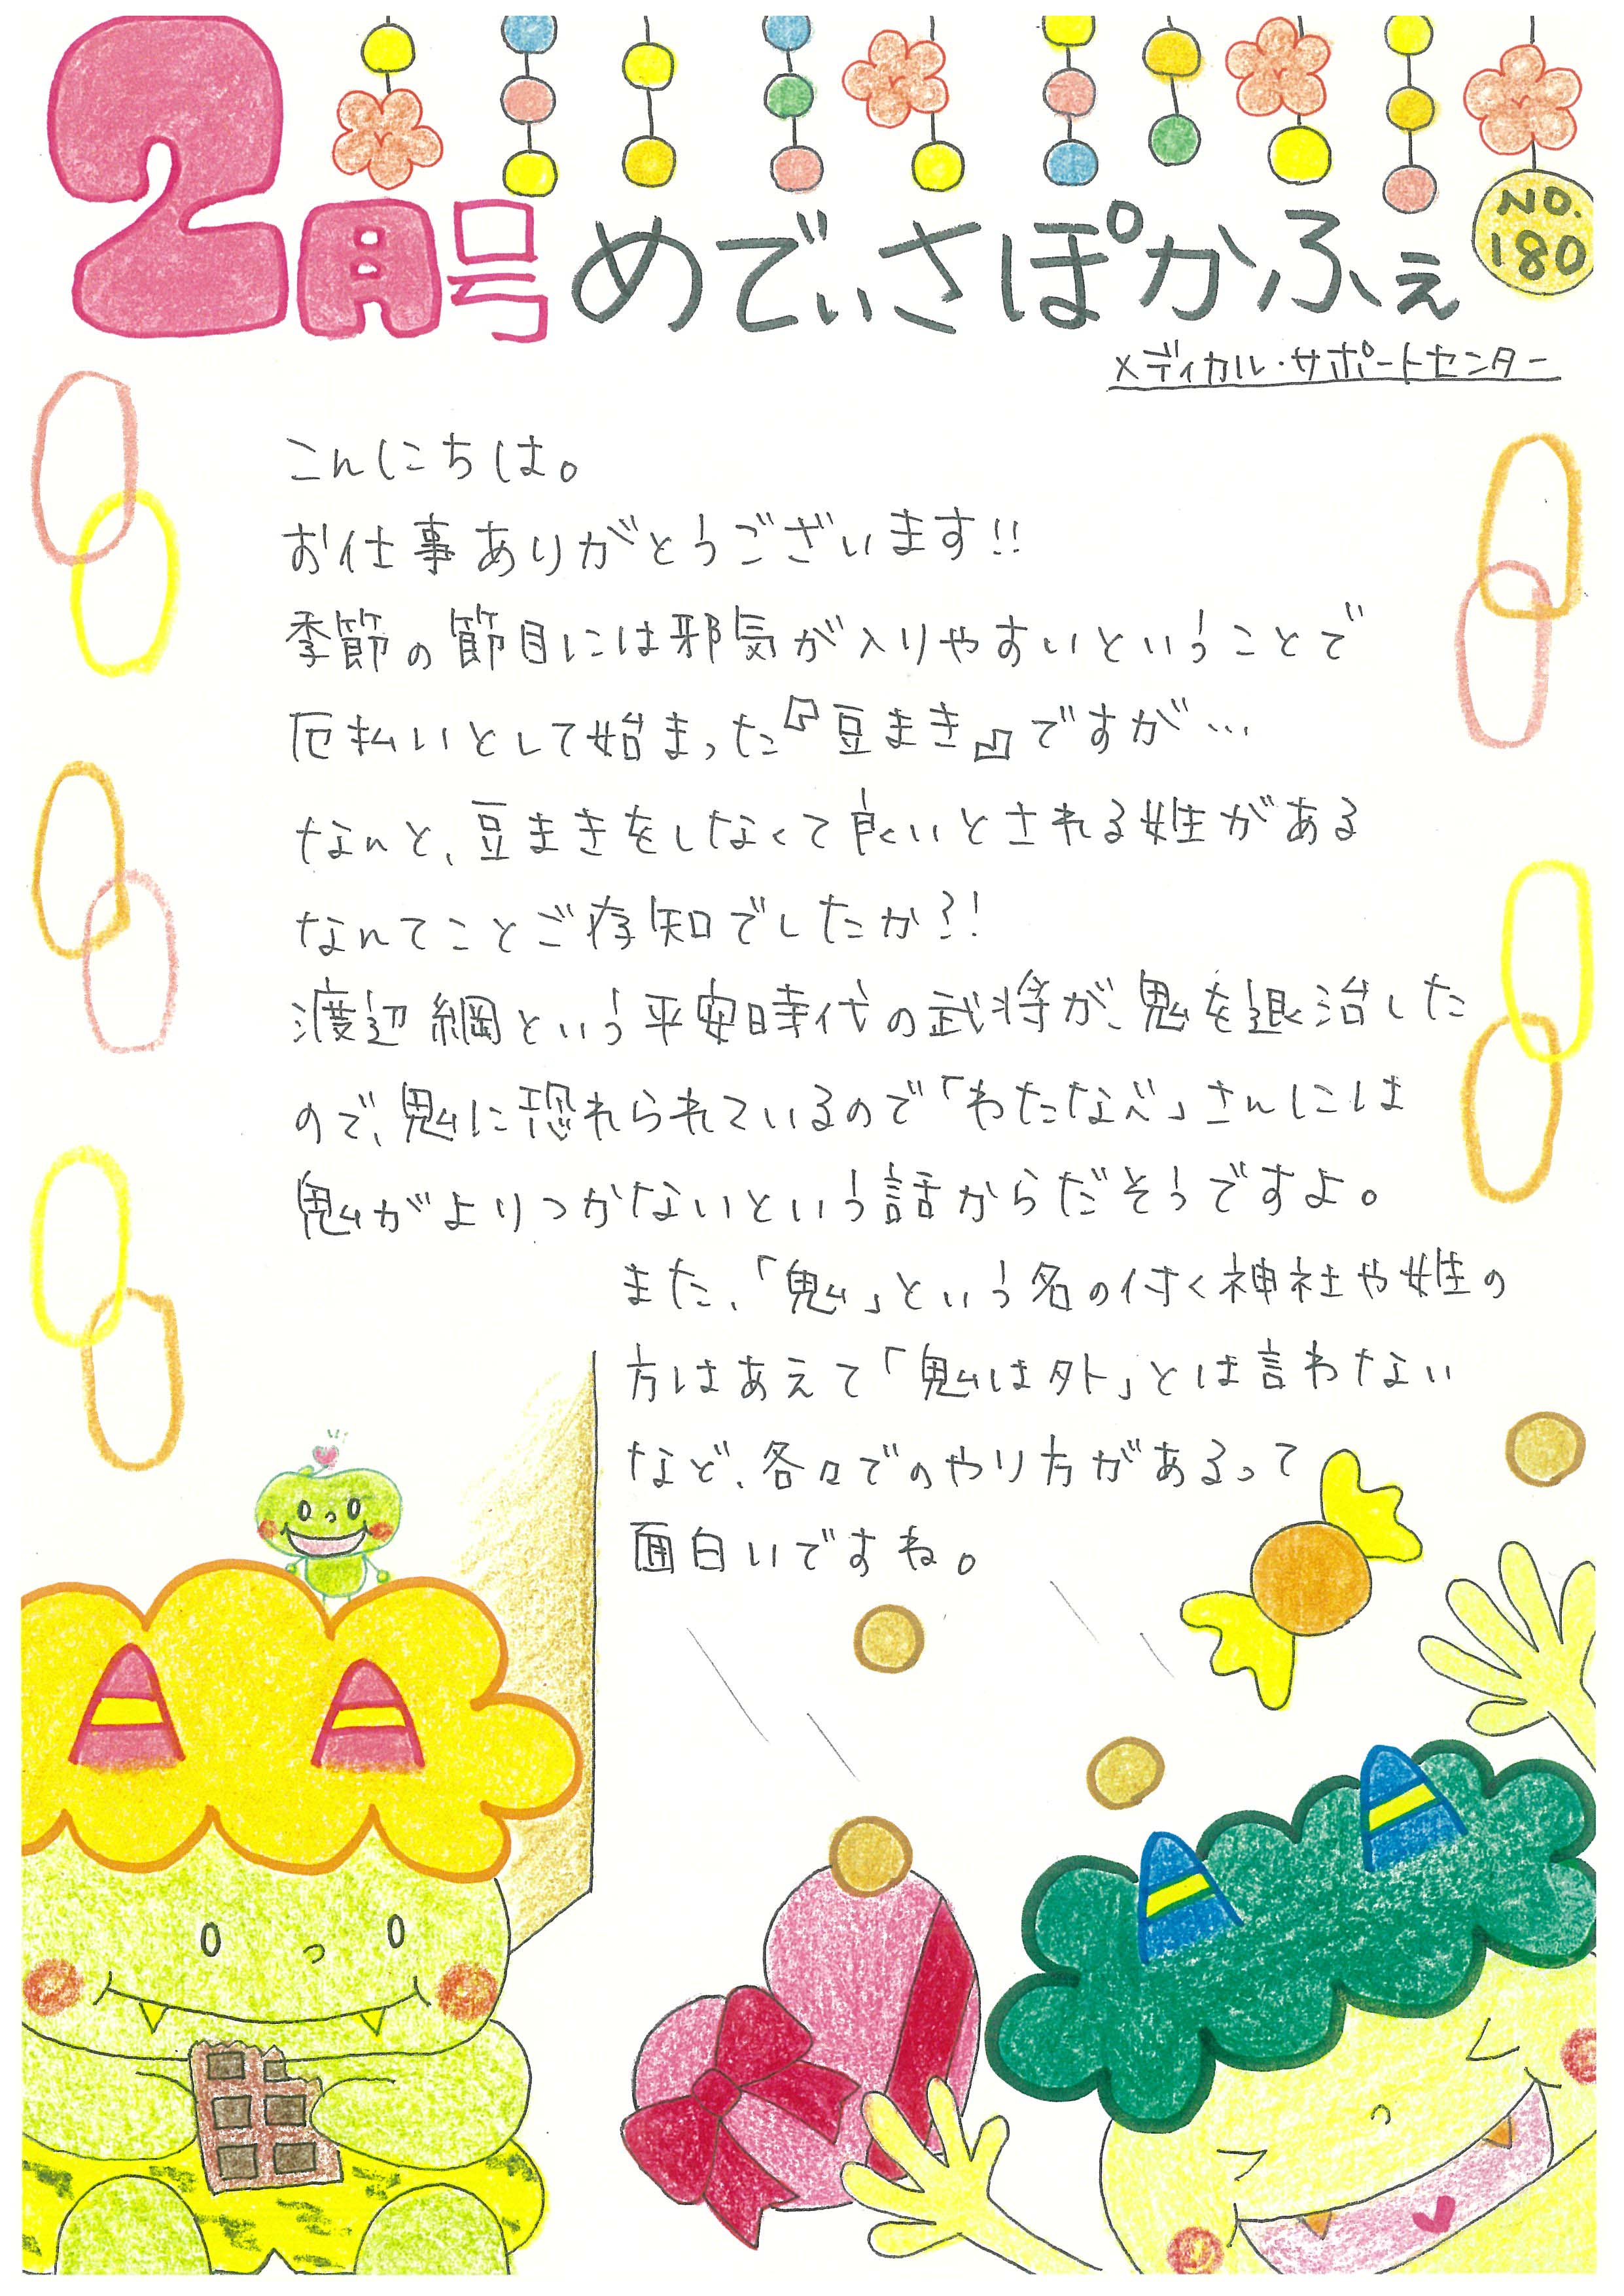 2月号 めでぃさぽかふぇ NO.180
メディカル・サポートセンター
こんにちは。
お仕事ありがとうございます!!
季節の節目には邪気が入りやすいということで
厄払いとして始まった『豆まき』ですが…
なんと、豆まきをしなくて良いとされる姓がある
なんてことご存知でしたか?!
渡辺綱という平安時代の武将が、鬼を退治した
ので、鬼に恐れられているので「わたなべ」さんには
鬼がよりつかないという話からだそうですよ。
また、「鬼」という名の付く神社や姓の
方はあえて「鬼は外」とは言わない
など、各々でのやり方があるって
面白いですね。